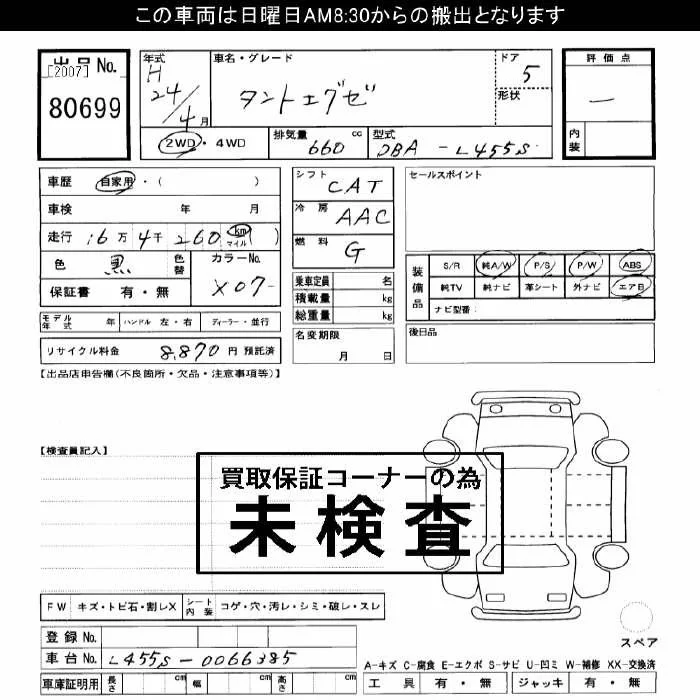 この車両は日曜日AM8:30からの搬出となります
出品No.
[2007]
80699
年式
H
24/4月
車名・グレード
タントエグゼ
ドア
5
形状
評価点
—
内装
2WD・4WD
排気量 660 cc
型式 DBA-L455S
車歴 自家用・( )
車検 年 月
走行 16万4千260 km マイル ( )
色 黒 色替 カラーNo. X07-
保証書 有・無
シフト CAT
冷房 AAC
燃料 G
乗車定員 名
積載量 kg
総重量 kg
名変期限
月 日
セールスポイント
装備品
S/R 純A/W P/S P/W ABS
純TV 純ナビ 革シート 外ナビ エアB
ナビ型番:
後日品
モデル年式 年 ハンドル 左・右 ディーラー・並行
リサイクル料金 8,870 円 預託済
【出品店申告欄(不良箇所・欠品・注意事項等)】
【検査員記入】
買取保証コーナーの為
未検査
FW キズ・トビ石・割レX シート内装 コゲ・穴・汚レ・シミ・破レ・スレ
登録No.
車台No. L455S-0066385
車庫証明用 長さ cm 幅 cm 高さ cm
スペア
A-キズ C-腐食 E-エクボ S-サビ U-凹ミ W-補修 XX-交換済
工具 有・無 ジャッキ 有・無